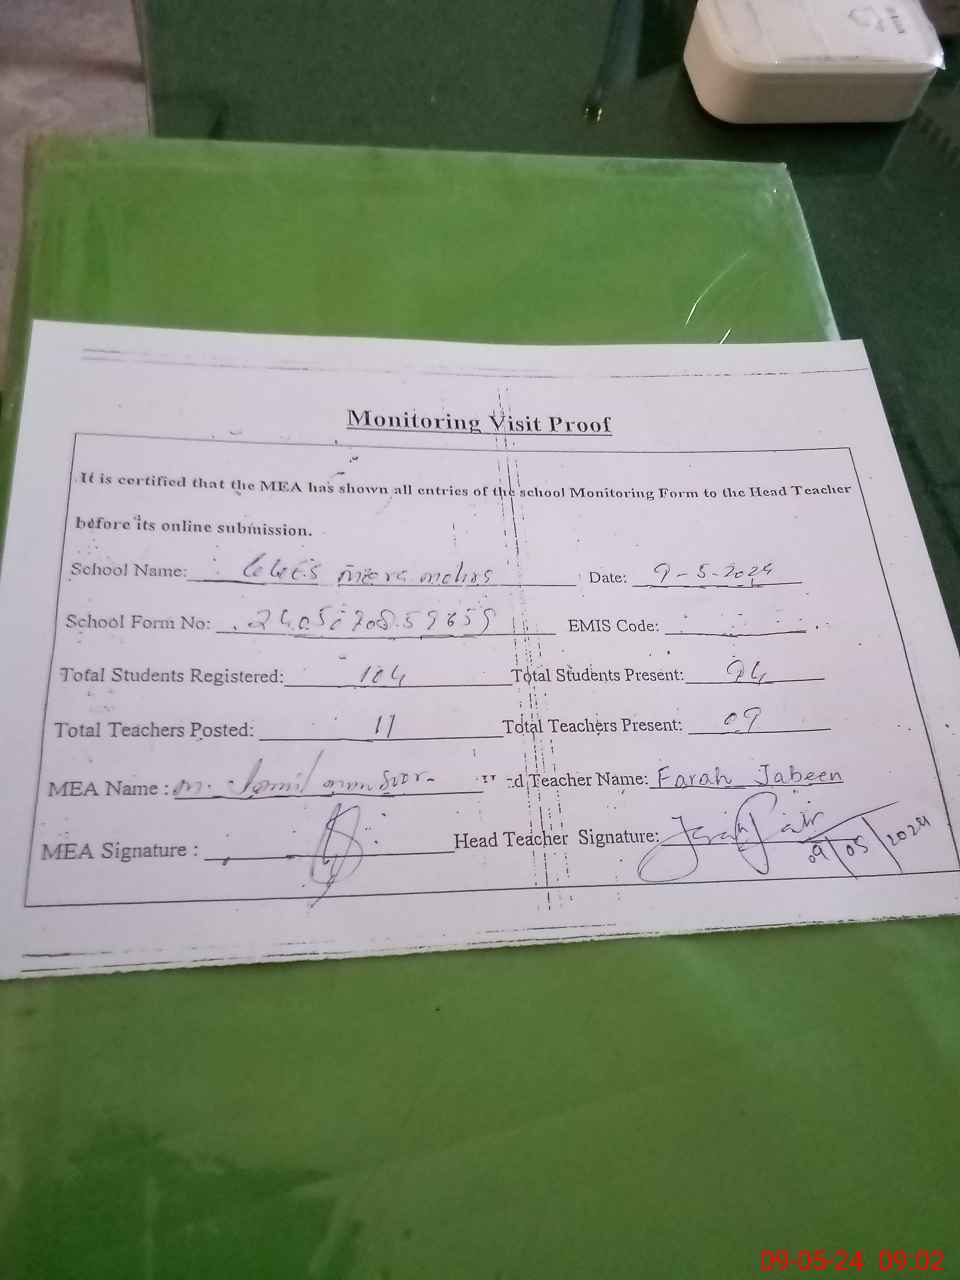 Monitoring Visit Proof
It is certified that the MEA has shown all entries of the school Monitoring Form to the Head Teacher
before its online submission.
School Name: Date: 9-5-2024
School Form No: EMIS Code:
Total Students Registered: 104 Total Students Present: 94
Total Teachers Posted: 11 Total Teachers Present: 09
MEA Name : d Teacher Name: Farah Jabeen
MEA Signature : Head Teacher Signature:
09/05/2024
09-05-24 09:02